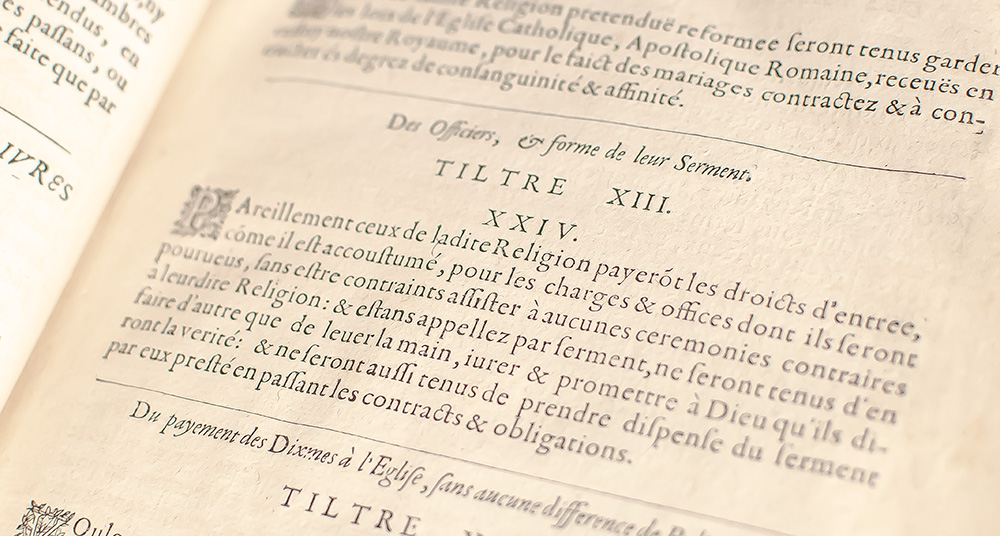 ny
ambres
endus, en
es paſſans, ou
faite que par
IVRES
Religion pretenduë reformee ſeront tenus garder
les loix de l'Egliſe Catholique, Apoſtolique Romaine, receuës en
ceſtuy noſtre Royaume, pour le faict des mariages contractez & à con-
tracter és degrez de conſanguinité & affinité.
Des Officiers, & forme de leur Serment.
TILTRE XIII.
XXIV.
PAreillement ceux de ladite Religion payerõt les droicts d'entree,
cóme il eſt accouſtumé, pour les charges & offices dont ils ſeront
pourueus, ſans eſtre contraints aſſiſter à aucunes ceremonies contraires
à leurdite Religion: & eſtans appellez par ſerment, ne ſeront tenus d'en
faire d'autre que de leuer la main, iurer & promettre à Dieu qu'ils di-
ront la verité: & ne ſeront auſſi tenus de prendre diſpenſe du ſerment
par eux preſté en paſſant les contracts & obligations.
Du payement des Dixmes à l'Egliſe, ſans aucune difference de
TILTRE